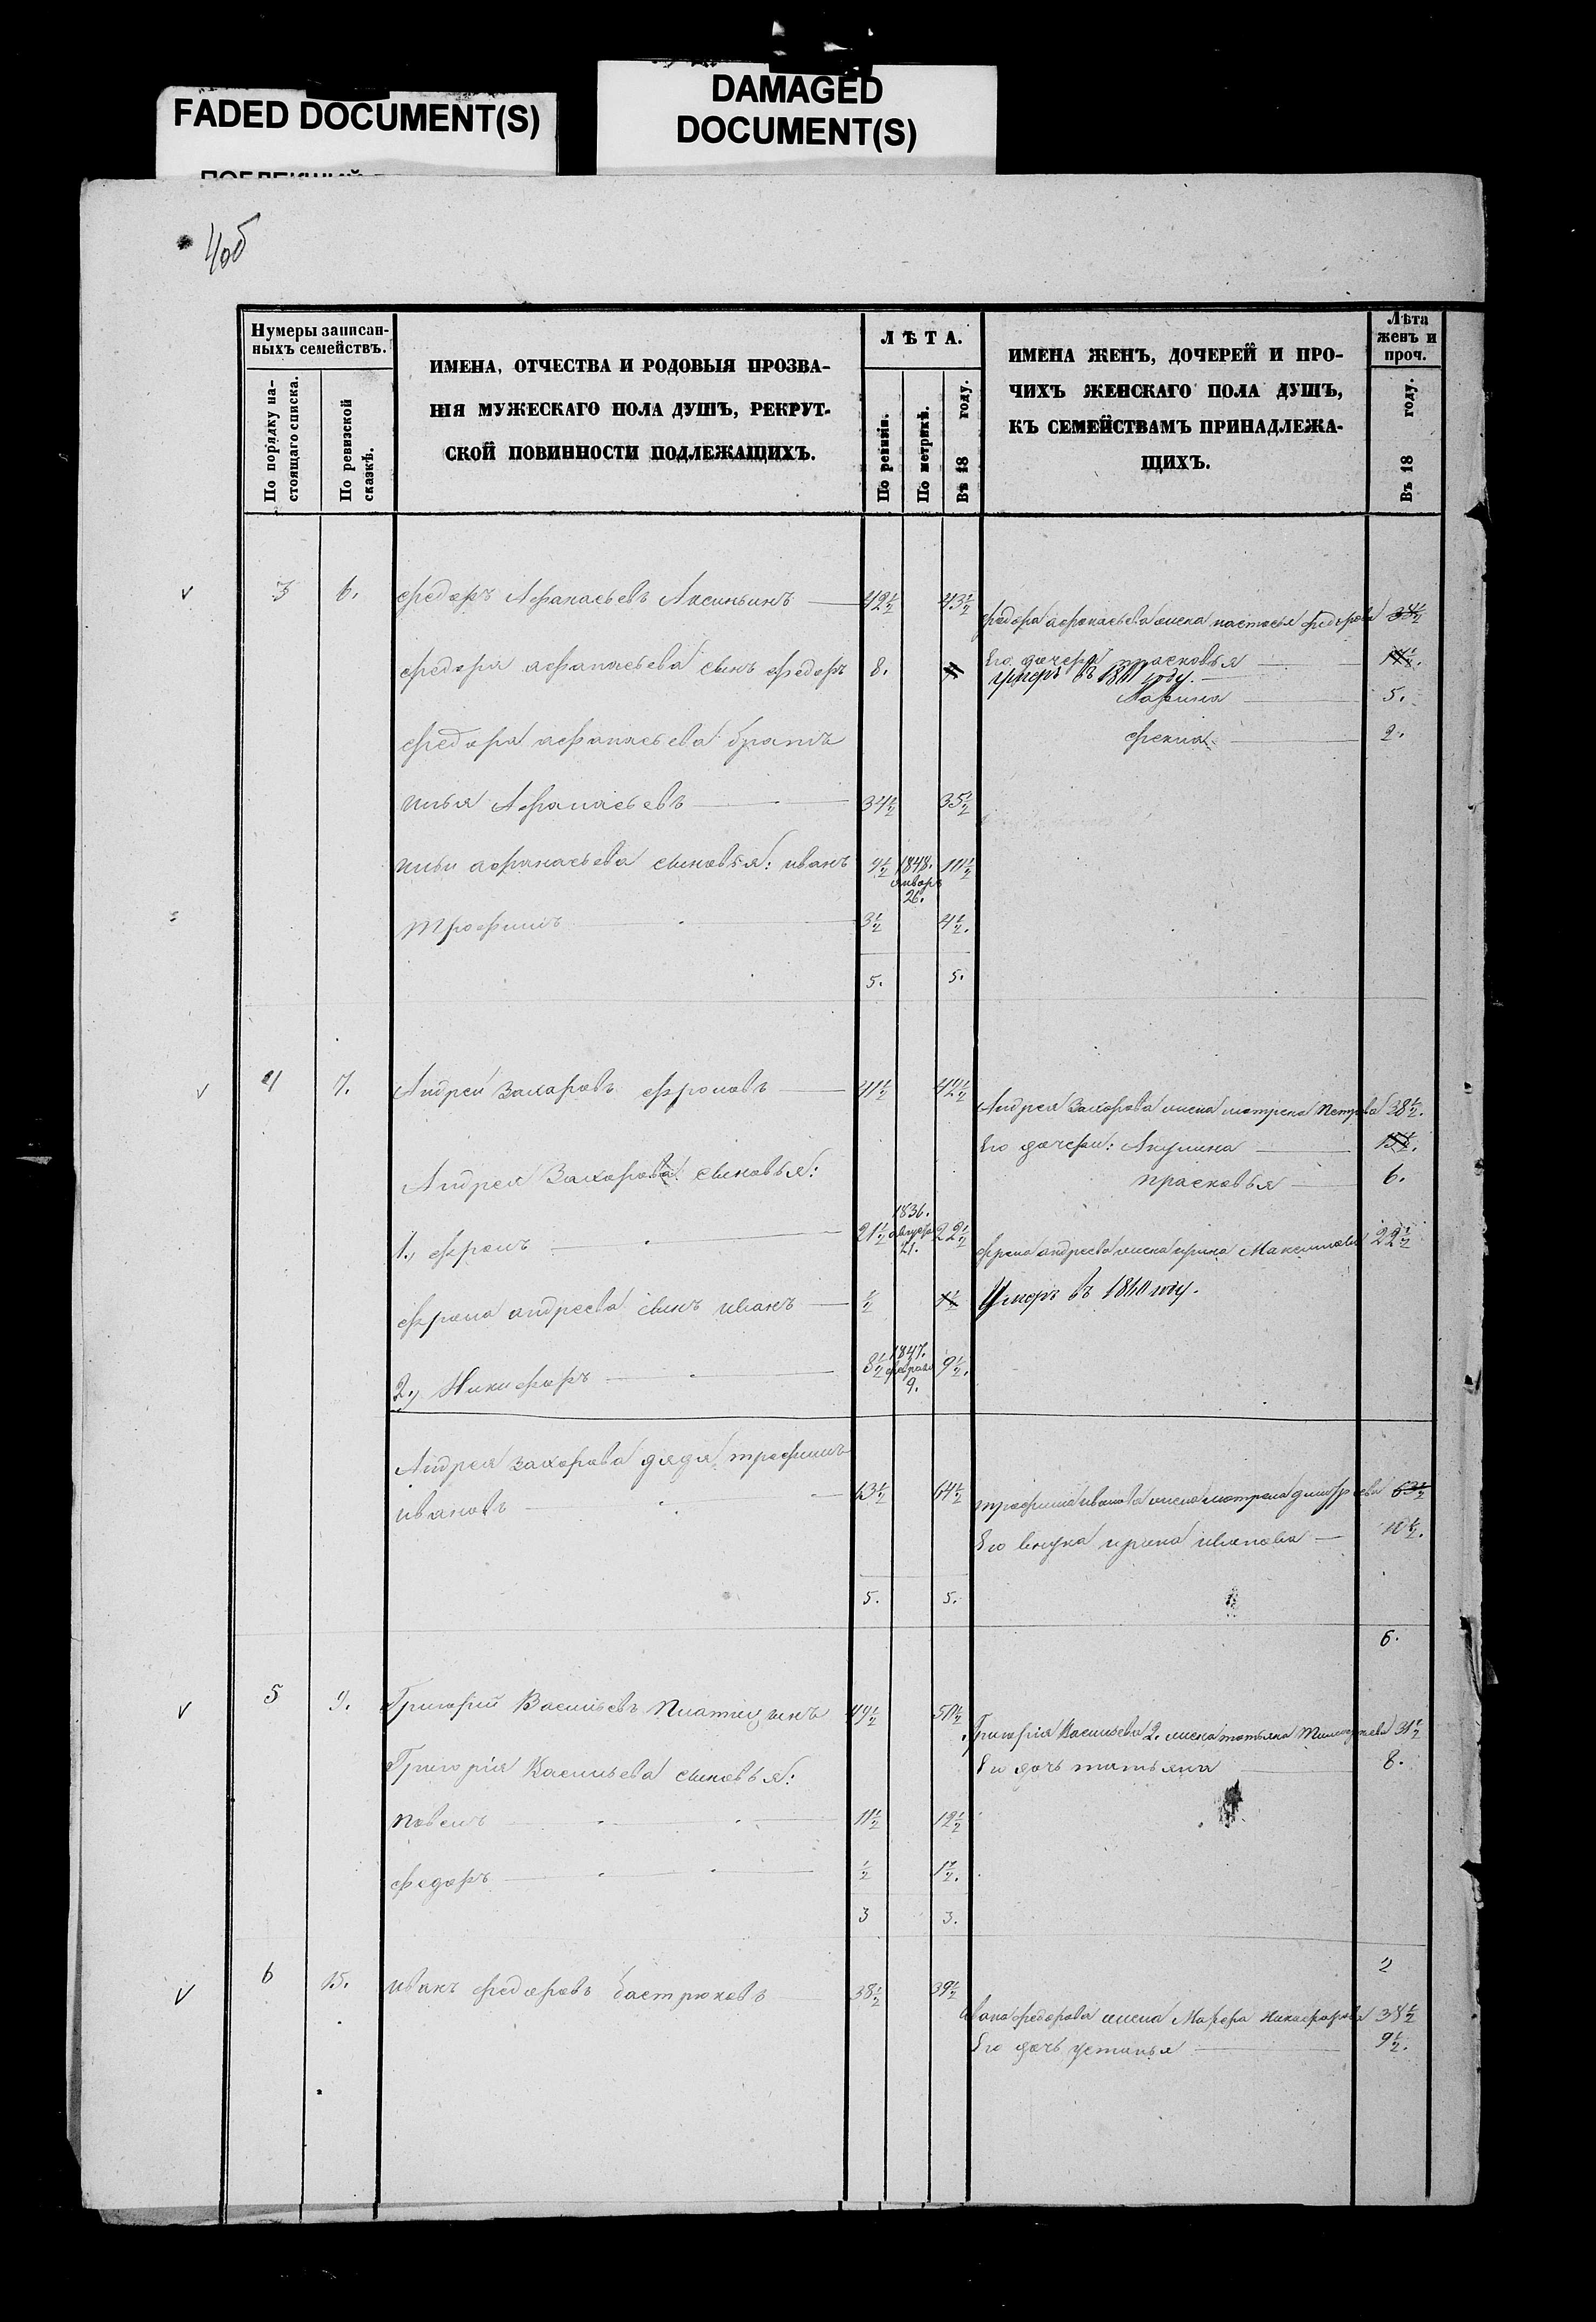 FADED DOCUMENT(S)
DAMAGED
DOCUMENT(S)
4об
Нумеры записан-
ныхъ семействъ.
По порядку на-
стоящаго списка.
По ревизской
сказкѣ.
ИМЕНА, ОТЧЕСТВА И РОДОВЫЯ ПРОЗВА-
НІЯ МУЖЕСКАГО ПОЛА ДУШЪ, РЕКРУТ-
СКОЙ ПОВИННОСТИ ПОДЛЕЖАЩИХЪ.
ЛѢТА.
По ревизіи.
По метрикѣ.
Въ 18 году.
ИМЕНА ЖЕНЪ, ДОЧЕРЕЙ И ПРО-
ЧИХЪ ЖЕНСКАГО ПОЛА ДУШЪ,
КЪ СЕМЕЙСТВАМЪ ПРИНАДЛЕЖА-
ЩИХЪ.
Лѣта
женъ и
проч.
Въ 18 году.
3 6. Федоръ Афанасьевъ Аксиньинъ 42½ 43½
Федора Афанасьева жена настасья Федорова 34½
Федора Афанасьева сынъ Федоръ 8.
Его дочери прасковья
умеръ въ году.
Марина 5.
Фекла 2.
Федора Афанасьева братъ
илья Афанасьевъ 34½ 35½
ильи Афанасьева сыновья: иванъ 1848. январь 26. 11½
Трофимъ 3½ 4½.
5. 5.
4 7. Андрей Захаровъ Фроловъ 41½ 42½
Андрея Захарова жена матрена Петрова 38½.
Его дочери: Акулина
прасковья 6.
Андрея Захарова сыновья:
1., Фролъ 21½ 1836. августа 21. 22½
Фрола андреева жена ирина Максимова 22½
Фрола андреева сынъ иванъ ½ 1½
Умеръ въ 1860 году.
2., Никифоръ 8½ 1847. февраля 9. 9½.
Андрея Захарова дядя трофимъ
ивановъ 63½ 64½
трофима иванова жена матрена дмитріева 63½
Его внука ирина иванова 10½.
5. 5.
6.
5 9. Григорій Васильевъ Платицынъ 49½ 50½
Григорія Васильева 2. жена татьяна Тимофеева 31½
Григорія Васильева сыновья:
Его дочь татьяна 8.
павелъ 11½ 12½
федоръ ½ 1½.
3 3.
2
6 15. иванъ Федоровъ бастрюковъ 38½ 39½
ивана Федорова жена Марфа Никифорова 38½
Его дочь устинья 9½.